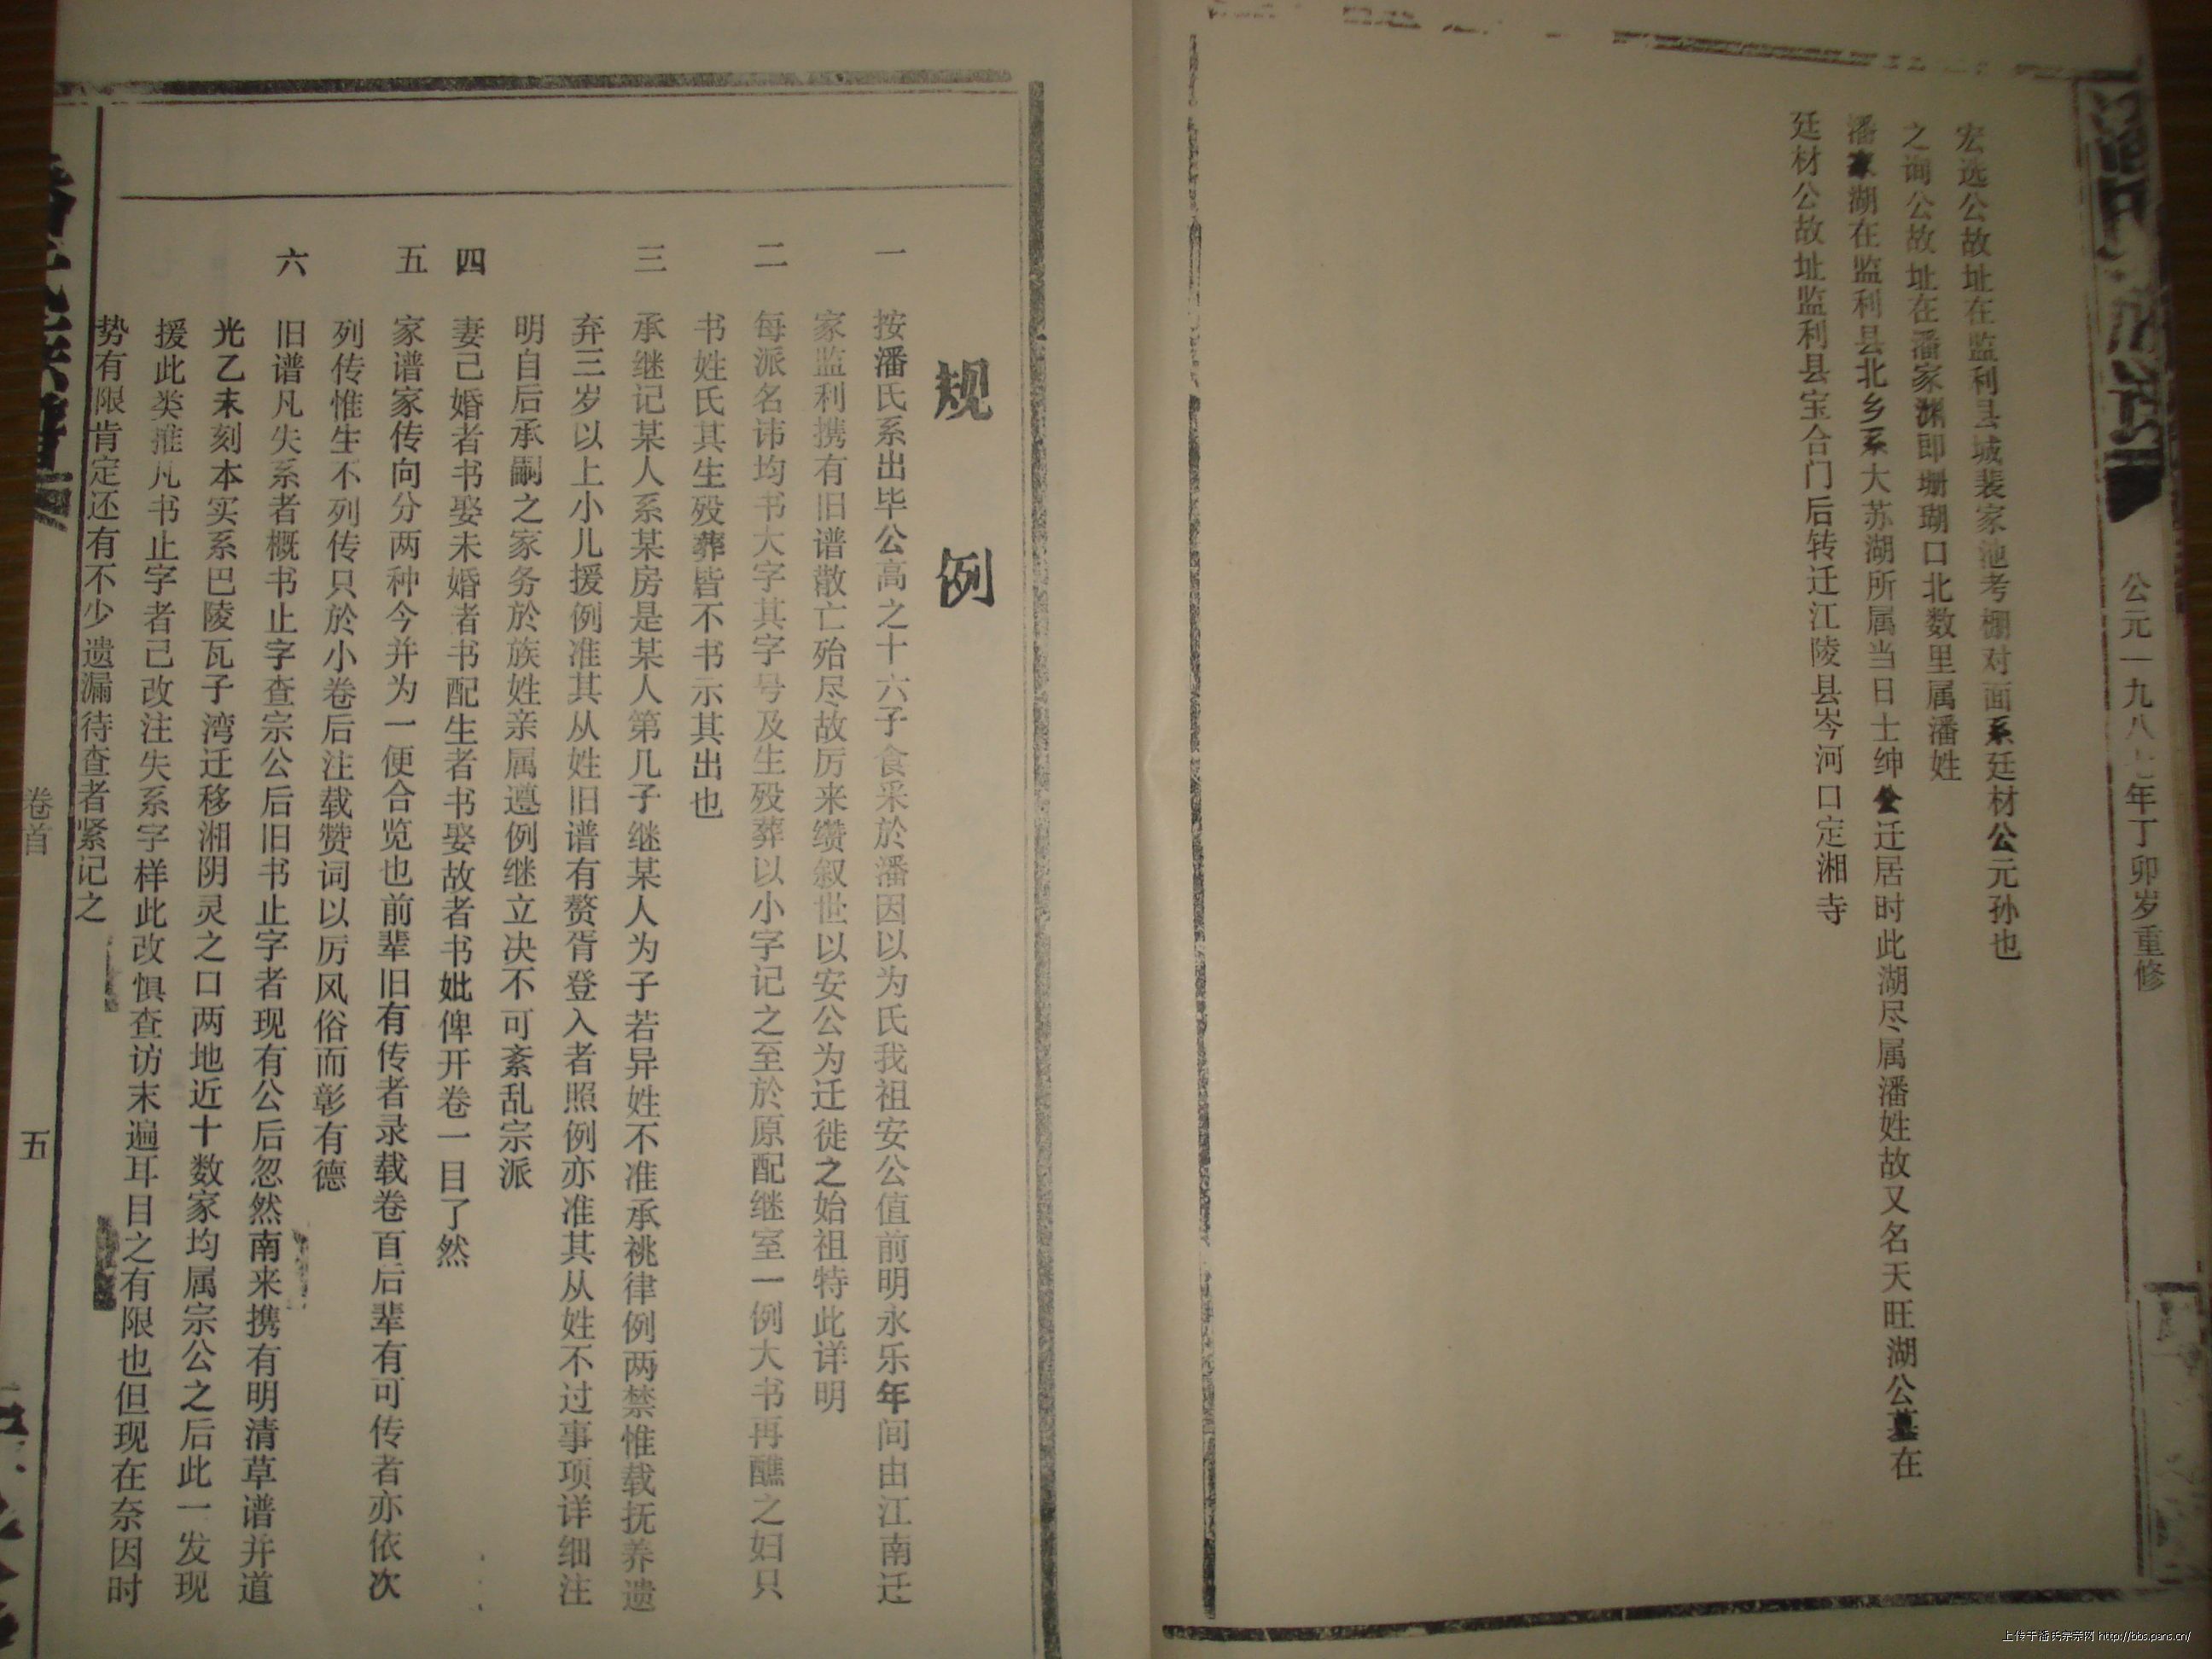 公元一九八七年丁卯岁重修
宏选公故址在监利县城裴家池考棚对面系廷材公元孙也
之询公故址在潘家渊即珊瑚口北数里属潘姓
潘家湖在监利县北乡系大苏湖所属当日士绅公迁居时此湖尽属潘姓故又名天旺湖公墓在
廷材公故址监利县宝合门后转迁江陵县岑河口定湘寺
规例
一 按潘氏系出毕公高之十六子食采於潘因以为氏我祖安公值前明永乐年间由江南迁
家监利携有旧谱散亡殆尽故厉来缵叙世以安公为迁徙之始祖特此详明
二 每派名讳均书大字其字号及生殁葬以小字记之至於原配继室一例大书再醮之妇只
书姓氏其生殁葬皆不书示其出也
三 承继记某人系某房是某人第几子继某人为子若异姓不准承祧律例两禁惟载抚养遗
弃三岁以上小儿援例准其从姓旧谱有赘胥登入者照例亦准其从姓不过事项详细注
明自后承嗣之家务於族姓亲属遵例继立决不可紊乱宗派
四 妻己婚者书娶未婚者书配生者书娶故者书妣俾开卷一目了然
五 家谱家传向分两种今并为一便合览也前辈旧有传者录载卷百后辈有可传者亦依次
列传惟生不列传只於小卷后注载赞词以厉风俗而彰有德
六 旧谱凡失系者概书止字查宗公后旧书止字者现有公后忽然南来携有明清草谱并道
光乙未刻本实系巴陵瓦子湾迁移湘阴灵之口两地近十数家均属宗公之后此一发现
援此类推凡书止字者己改注失系字样此改惧查访末遍耳目之有限也但现在奈因时
势有限肯定还有不少遗漏待查者紧记之
卷首
五
上传于潘氏宗亲网 http://bbs.pans.cn/